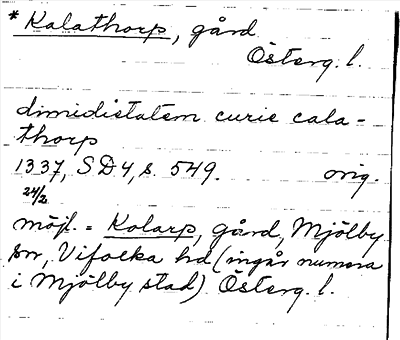 * Kalathorp, gård
Österg. l.
dimidietatem curie cala-
thorp
1337, SD4, s. 549. orig.
24/2
möjl. = Kolarp, gård, Mjölby
sn, Vifolka hd (ingår numera
i Mjölby stad) Österg. l.